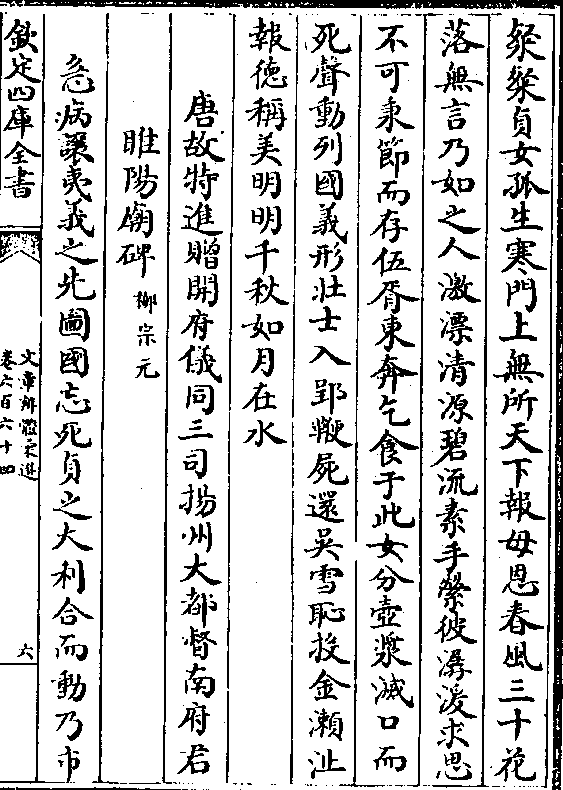 粲粲貞女孤生寒門上無所天下報母恩春風三十花
落無言乃如之人激漂清源碧流素手縈彼潺湲求思
不可秉節而存伍胥東奔乞食于此女分壺漿滅口而
死聲動列國義形壯士入郢鞭屍還吳雪恥投金瀨沚
報德稱美明明千秋如月在水
唐故特進贈開府儀同三司揚州大都督南府君
睢陽廟碑 柳宗元
急病讓夷義之先圖國忘死貞之大利合而動乃市
欽定四庫全書
文章辨體彙選
卷六百六十四
六